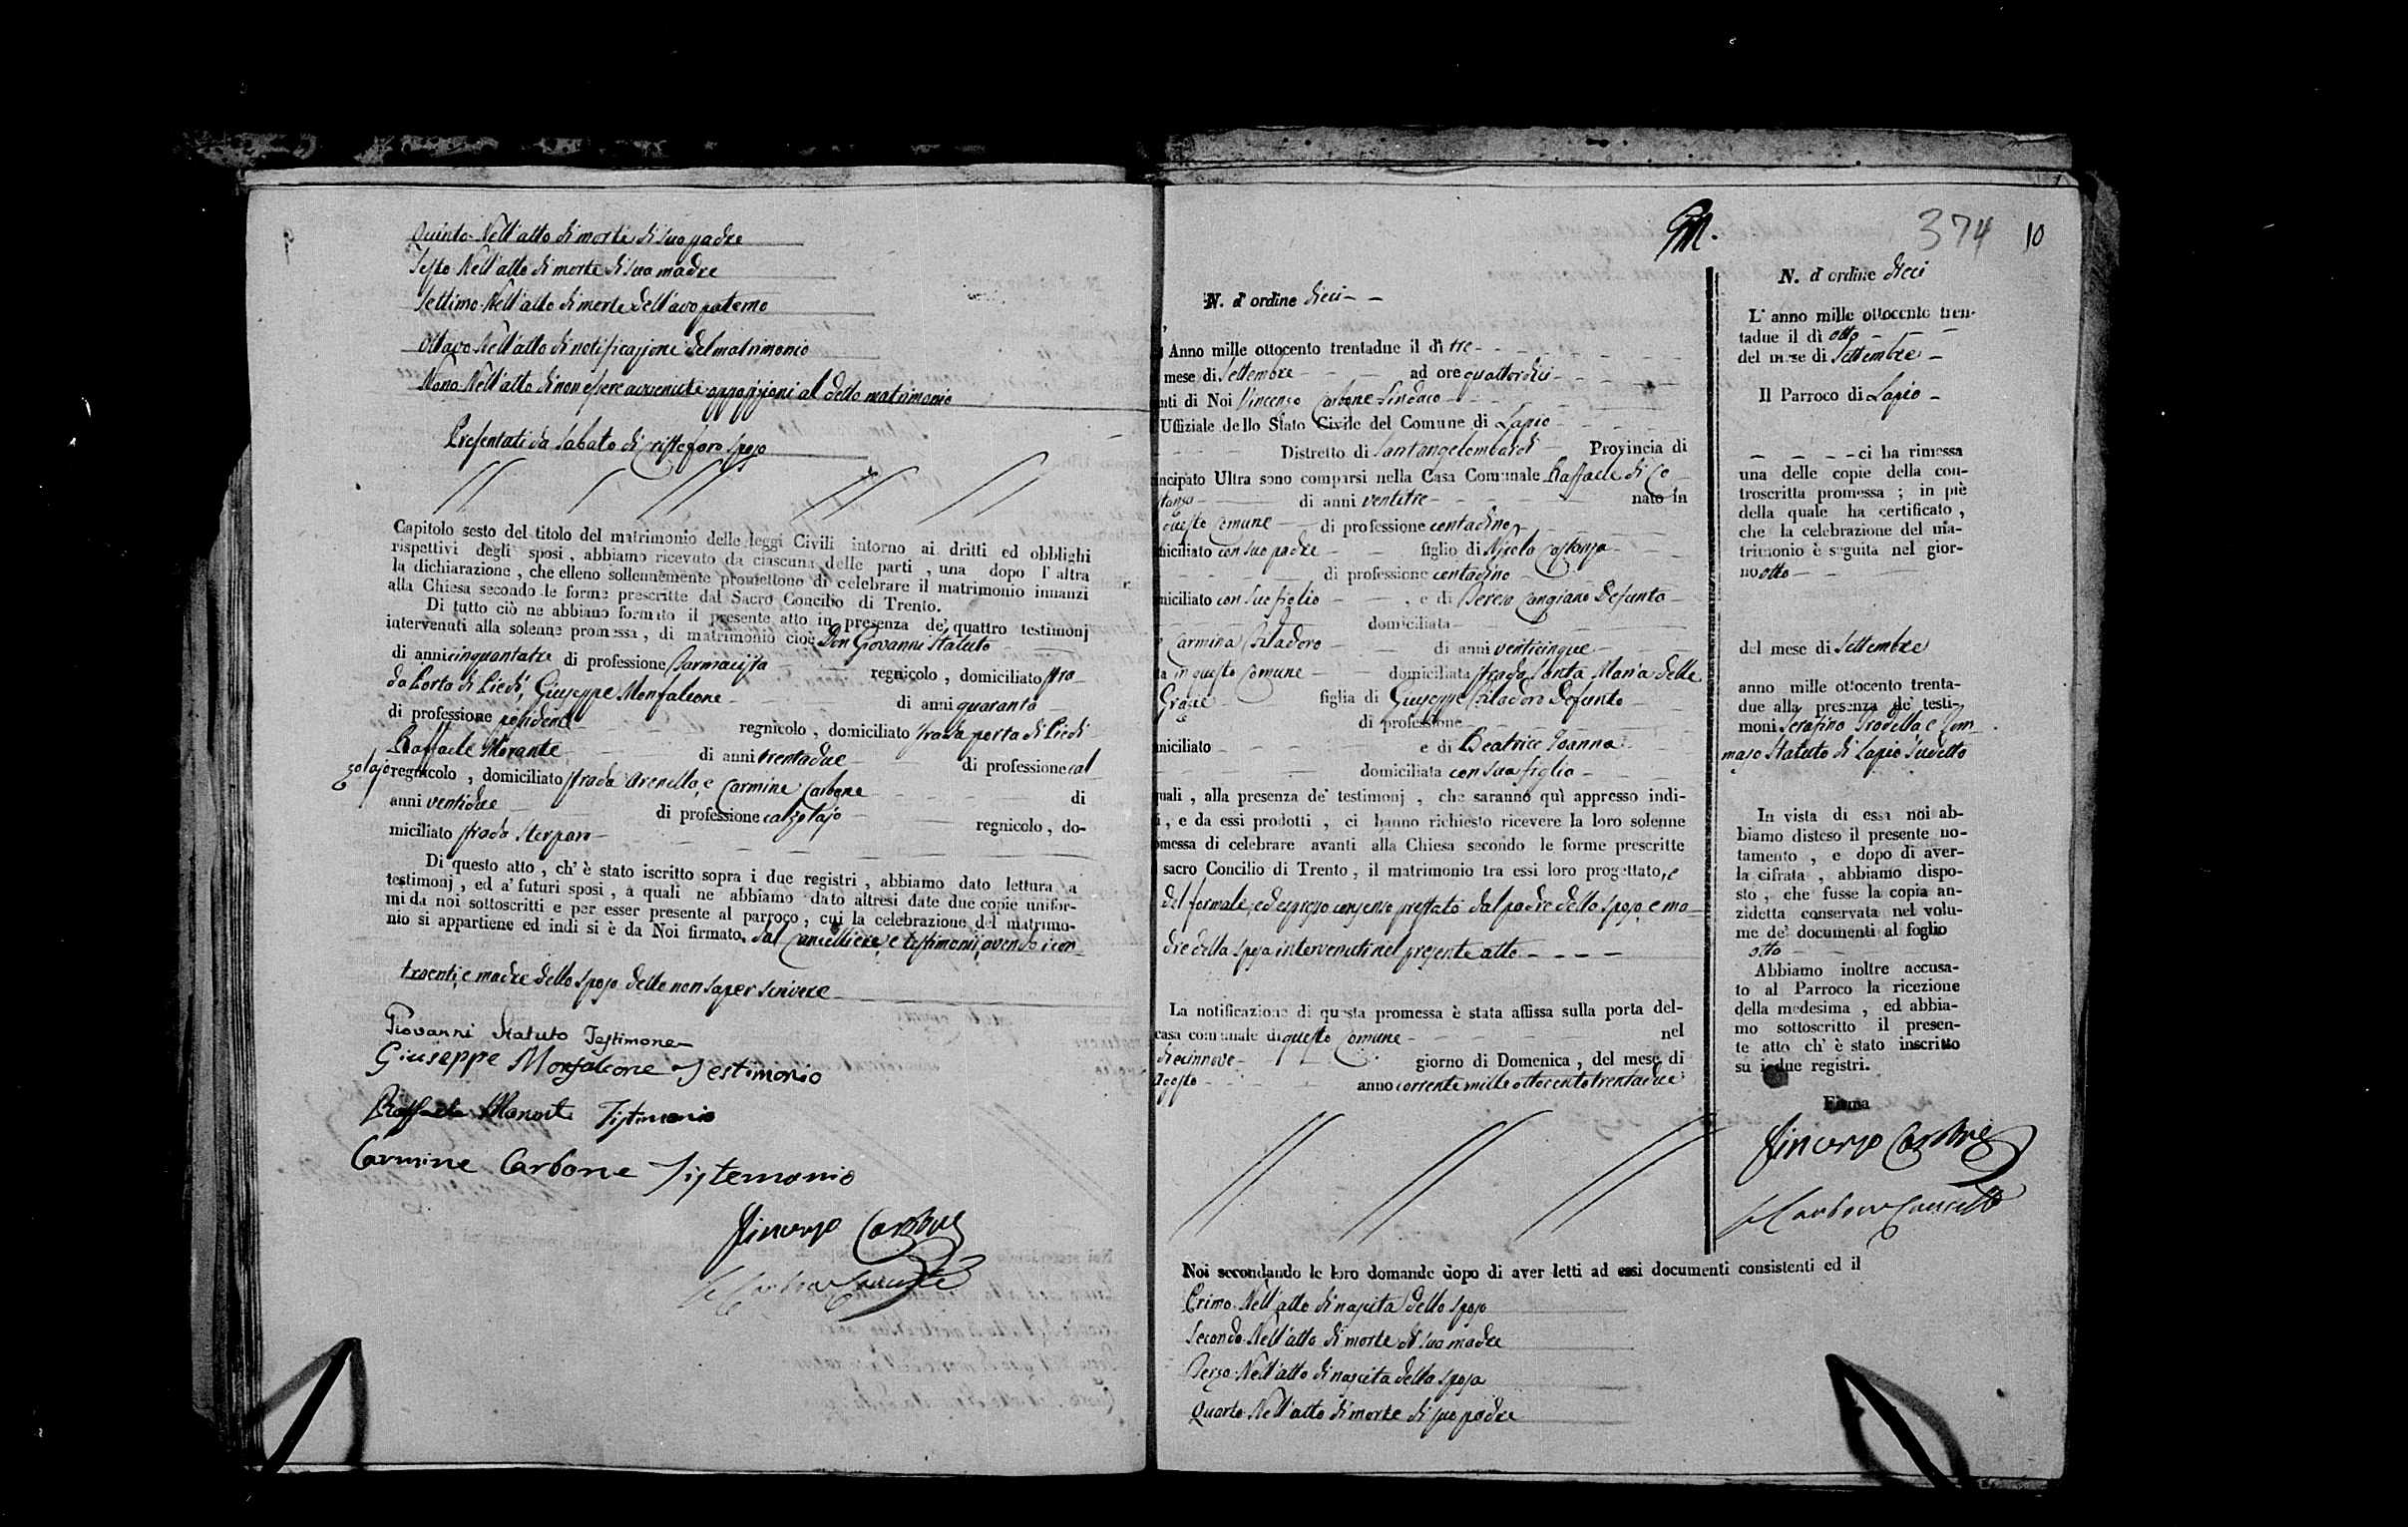 9
Quinto. Nell'atto di morte di suo padre
Sesto Nell'atto di morte di sua madre
Settimo. Nell'atto di morte dell'avo paterno
Ottavo. Nell'atto di notificazione del matrimonio
Nono. Nell'atto di non essere avvenute opposizioni al detto matrimonio
Presentati da Sabato di Cristofaro sposo
Capitolo sesto del titolo del matrimonio delle leggi Civili intorno ai dritti ed obblighi
rispettivi degli sposi, abbiamo ricevuto da ciascuna delle parti, una dopo l'altra
la dichiarazione, che elleno sollennemente promettono di celebrare il matrimonio innanzi
alla Chiesa secondo le forme prescritte dal Sacro Concilio di Trento.
Di tutto ciò ne abbiamo formato il presente atto in presenza de' quattro testimonj
intervenuti alla solenne promessa, di matrimonio cioè Don Giovanni Statuto
di anni cinquantatre di professione Farmacista regnicolo, domiciliato stra-
da Porta di Piedi, Giuseppe Monfalcone di anni quaranta
di professione regnicolo, domiciliato strada porta di Piedi
Raffaele Morante di anni trentadue di professione cal-
zolajo regnicolo, domiciliato strada Arenella, e Carmine Carbone di
anni ventidue di professione calzolajo regnicolo, do-
miciliato strada Sterparo
Di questo atto, ch'è stato iscritto sopra i due registri, abbiamo dato lettura a
testimonj, ed a' futuri sposi, a quali ne abbiamo dato altresì date due copie unifor-
mi da noi sottoscritti e per esser presente al parroco, cui la celebrazione del matrimo-
nio si appartiene ed indi si è da Noi firmato, dal Cancelliere, e testimonii, avendo i con-
traenti, e madre dello sposo detto non saper scrivere
Giovanni Statuto Testimone
Giuseppe Monfalcone Testimonio
Raffaele Morante Testimonio
Carmine Carbone Testemonio
Vincenzo Carbone
Carbone Cancelliere
374 10
N. d'ordine dieci
Anno mille ottocento trentadue il dì tre
mese di Settembre ad ore quattordici
nti di Noi Vincenzo Carbone Sindaco
Uffiziale dello Stato Civile del Comune di Lapio
Distretto di Santangelombardi Provincia di
incipato Ultra sono comparsi nella Casa Comunale Raffaele di Co
stanzo di anni ventitre nato in
questo Comune di professione contadino
niciliato con suo padre figlio di Nicola Costanzo
di professione contadino
niciliato con suo figlio, e di Teresa Cangiano Defunta
domiciliata
Carmina Filadoro di anni venticinque
ta in questo Comune domiciliata strada Santa Maria delle
Grazie figlia di Giuseppe Filadoro Defunto
di professione
niciliato e di Beatrice Ioanna
domiciliata con sua figlia
uali, alla presenza de' testimonj, che saranno quì appresso indi-
i, e da essi prodotti, ci hanno richiesto ricevere la loro solenne
omessa di celebrare avanti alla Chiesa secondo le forme prescritte
sacro Concilio di Trento, il matrimonio tra essi loro progettato, e
del formale, ed espresso consenso prestato dal padre dello sposo, e ma-
dre della sposa intervenuti nel presente atto
La notificazione di questa promessa è stata affissa sulla porta del-
casa comunale di questo Comune nel
diecinnove giorno di Domenica, del mese di
Agosto anno corrente mille ottocento trentadue
Noi secondando le loro domande dopo di aver letti ad essi documenti consistenti ed il
Primo. Nell'atto di nascita dello sposo
Secondo. Nell'atto di morte di sua madre
Terzo. Nell'atto di nascita della sposa
Quarto. Nell'atto di morte di suo padre
N. d'ordine dieci
L'anno mille ottocento tren-
tadue il dì otto
del mese di Settembre
Il Parroco di Lapio
ci ha rimessa
una delle copie della con-
troscritta promessa; in piè
della quale ha certificato,
che la celebrazione del ma-
trimonio è seguita nel gior-
no otto
del mese di Settembre
anno mille ottocento trenta-
due alla presenza de' testi-
moni Serafino Trodella, e Tom-
maso Statuto di Lapio Sudetto
In vista di essa noi ab-
biamo disteso il presente no-
tamento, e dopo di aver-
la cifrata, abbiamo dispo-
sto, che fusse la copia an-
zidetta conservata nel volu-
me de' documenti al foglio
otto
Abbiamo inoltre accusa-
to al Parroco la ricezione
della medesima, ed abbia-
mo sottoscritto il presen-
te atto ch'è stato inscritto
su i due registri.
Firma
Vincenzo Carbone
Carbone Cancelliere